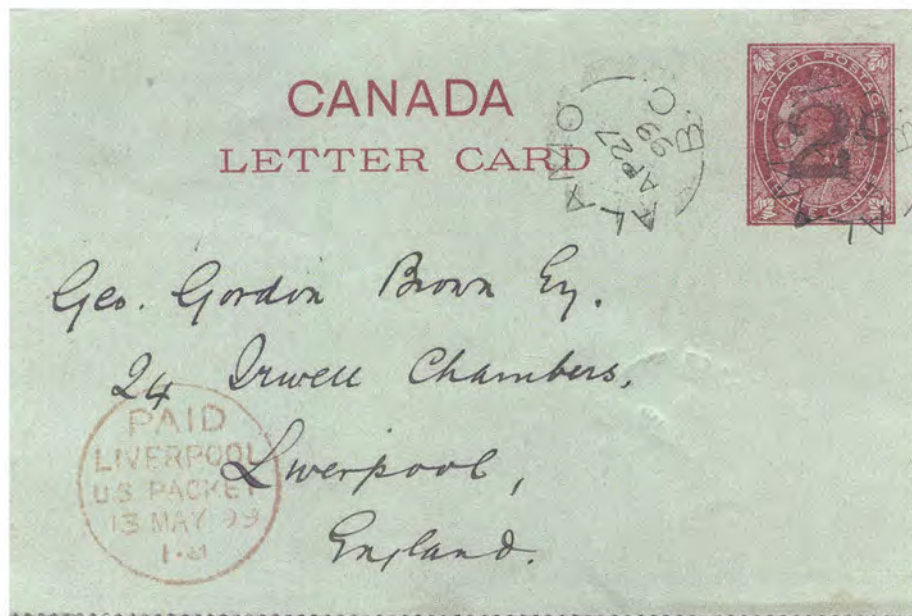 CANADA
LETTER CARD
ALAMO
AP 27
99
B.C.
CANADA POSTAGE
2c
CENTS
Geo. Gordon Brown Esq.
24 Orwell Chambers,
Liverpool,
England.
PAID
LIVERPOOL
U.S. PACKET
13 MAY 99